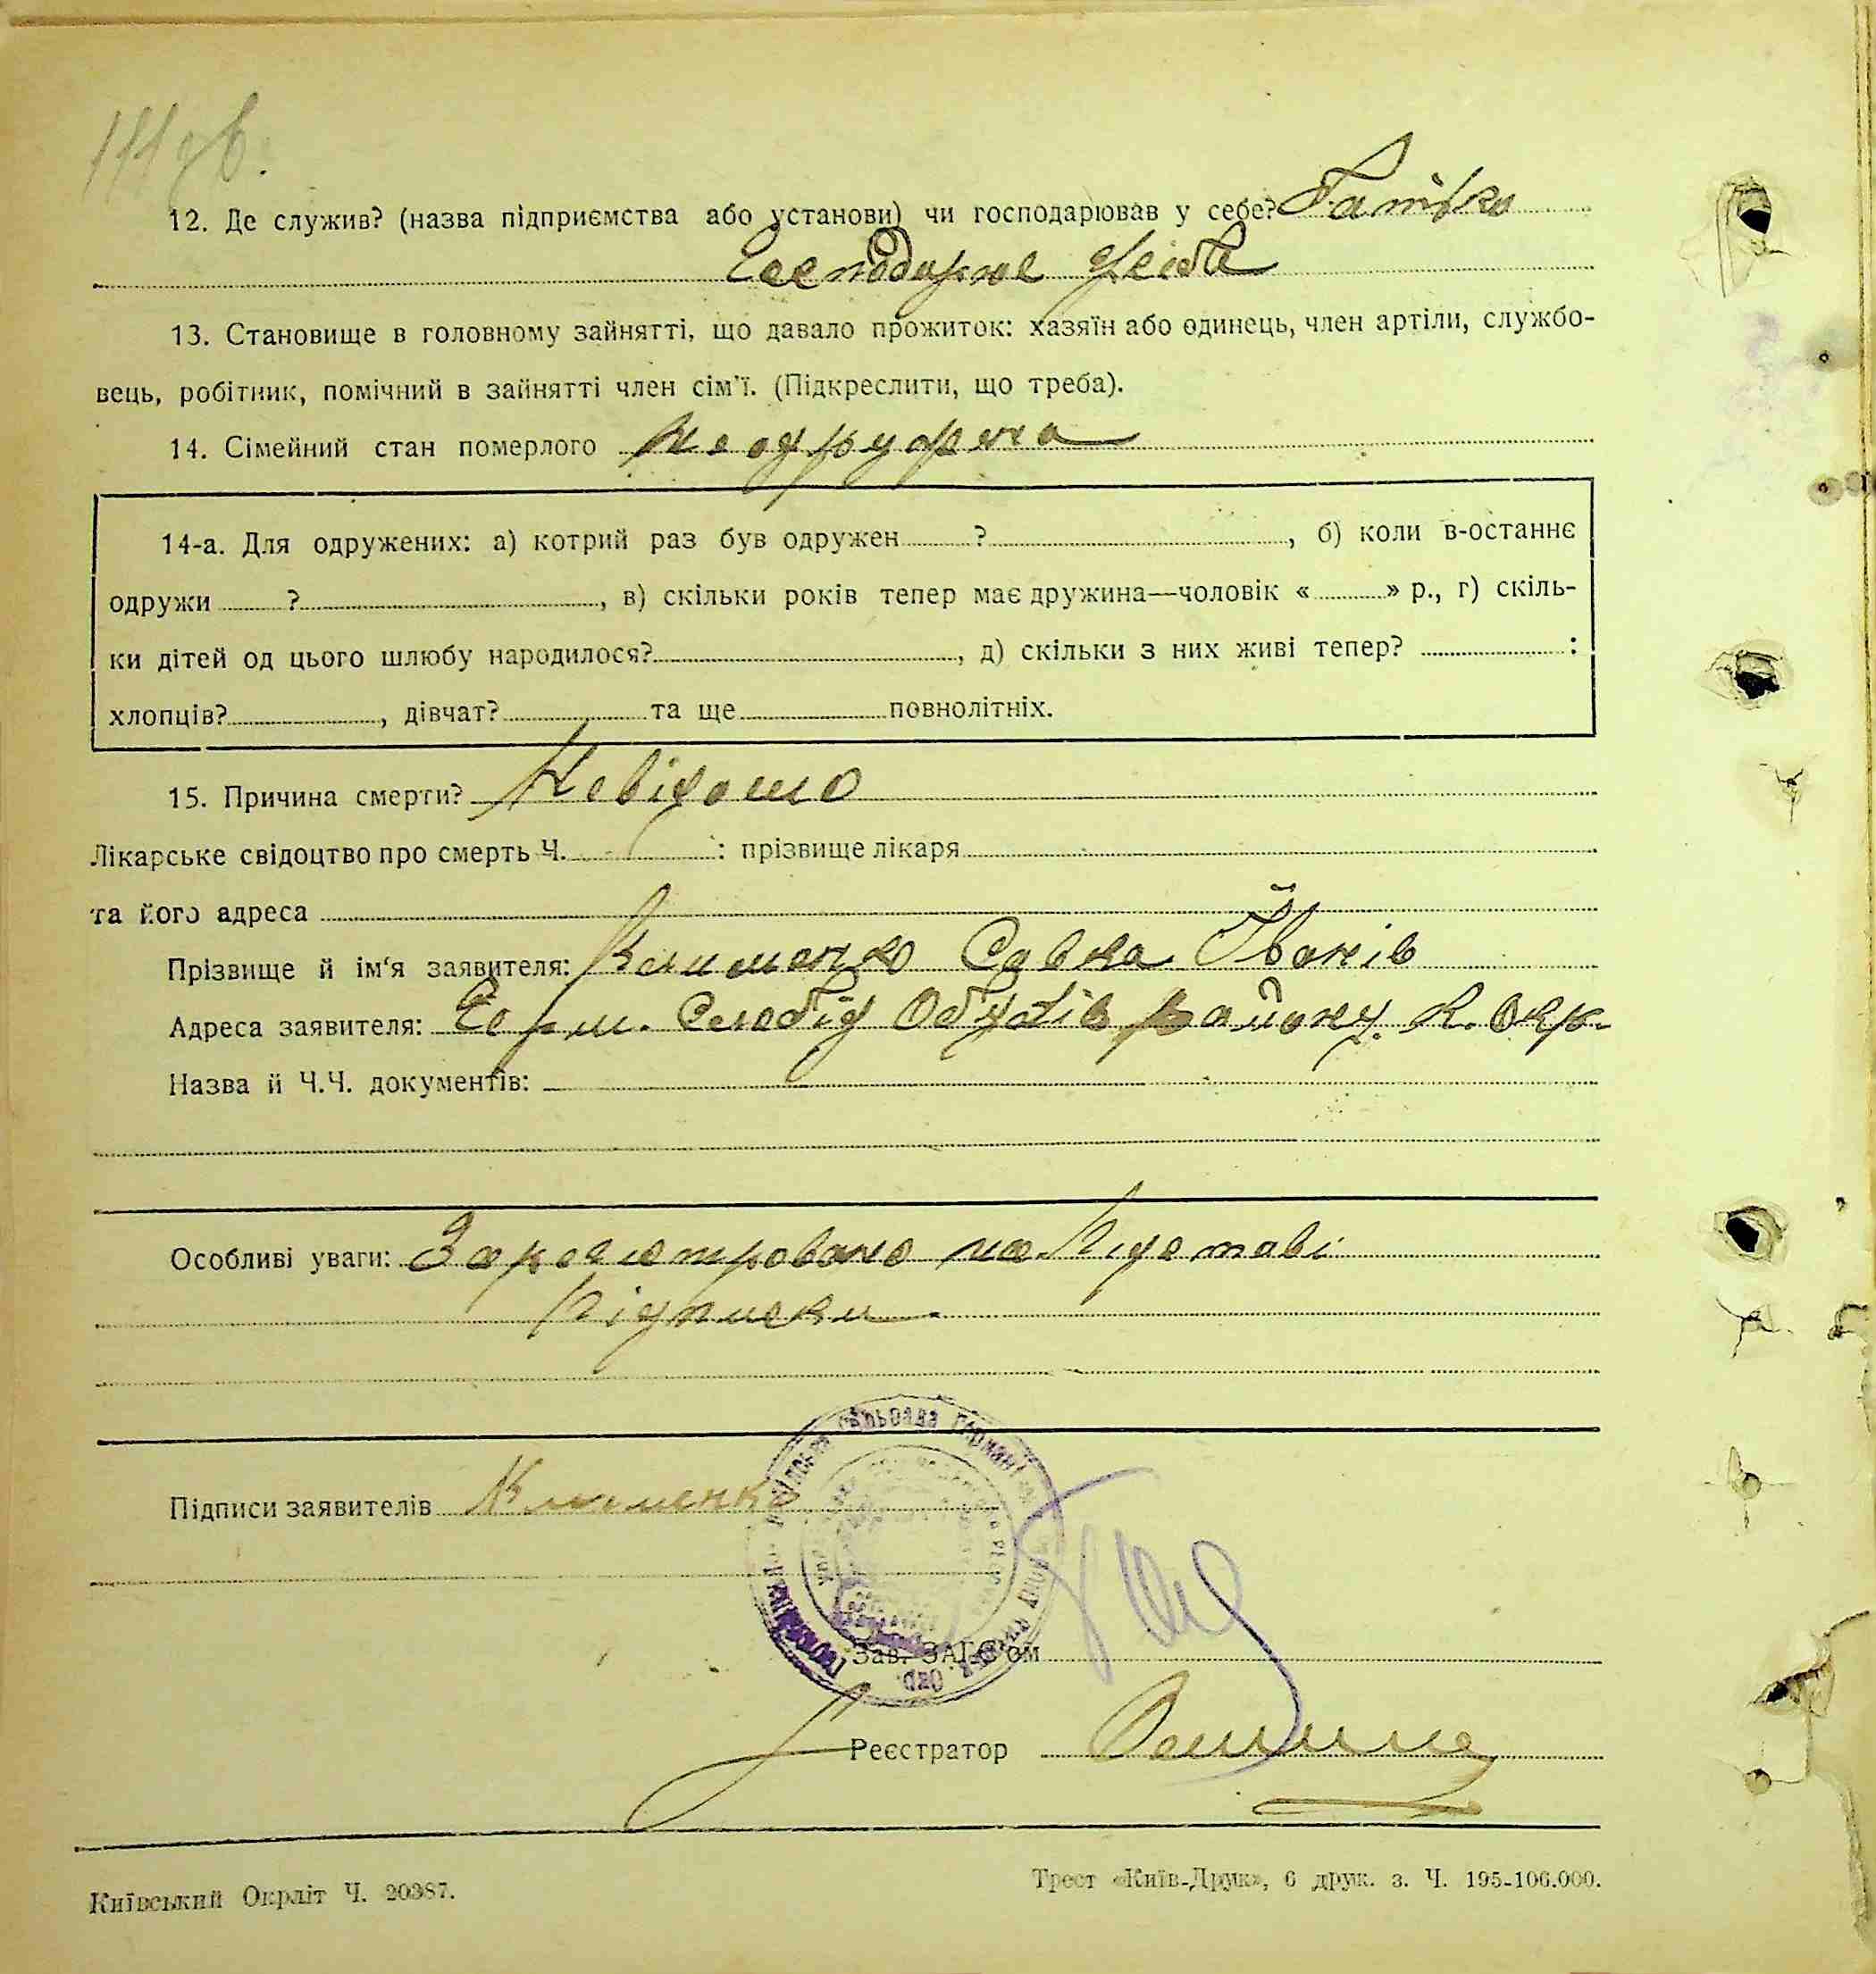 111 зв.
12. Де служив? (назва підприємства або установи) чи господарював у себе? Батько
Господарює
13. Становище в головному зайнятті, що давало прожиток: хазяїн або одинець, член артіли, службо-
вець, робітник, помічний в зайнятті член сім'ї. (Підкреслити, що треба).
14. Сімейний стан померлого неодружена
14-а. Для одружених: а) котрий раз був одружен ?, б) коли в-останнє
одружи ?, в) скільки років тепер має дружина—чоловік « » р., г) скіль-
ки дітей од цього шлюбу народилося?, д) скільки з них живі тепер? :
хлопців?, дівчат? та ще повнолітніх.
15. Причина смерти? Невідомо
Лікарське свідоцтво про смерть Ч. : прізвище лікаря
та його адреса
Прізвище й ім'я заявителя: Клименко Савка Іванів
Адреса заявителя: Герм. Слобід Обухів Району К. Окр.
Назва й Ч.Ч. документів:
Особливі уваги: Зареєстровано на Підставі
Підписки
Підписи заявителів Клименко
Зав. ЗАГС'ом
Реєстратор
Київський Окрліт Ч. 20387.
Трест «Київ-Друк», 6 друк. з. Ч. 195-106.000.